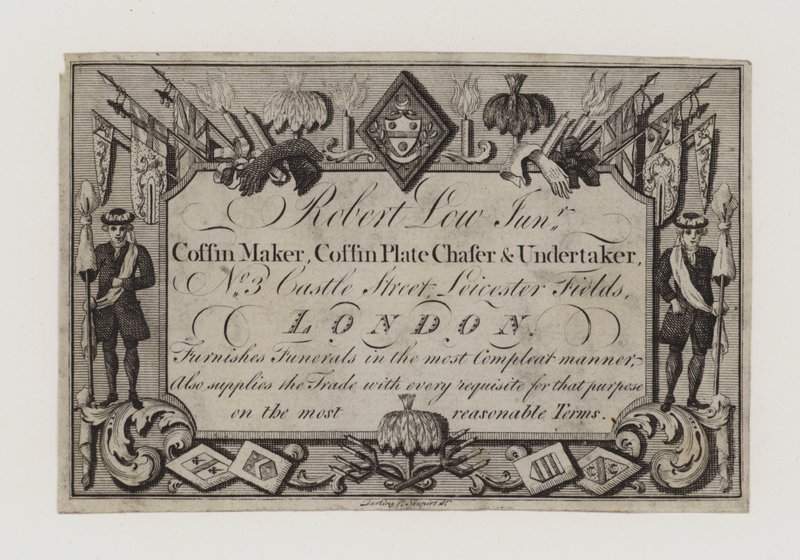 Robert Low Junr.
Coffin Maker, Coffin Plate Chaſer & Undertaker,
No. 3 Castle Street, Leicester Fields,
LONDON.
Furnishes Funerals in the most Compleat manner,
Also supplies the Trade with every requisite for that purpose
on the most reasonable Terms.
Darling ft. Newport St.